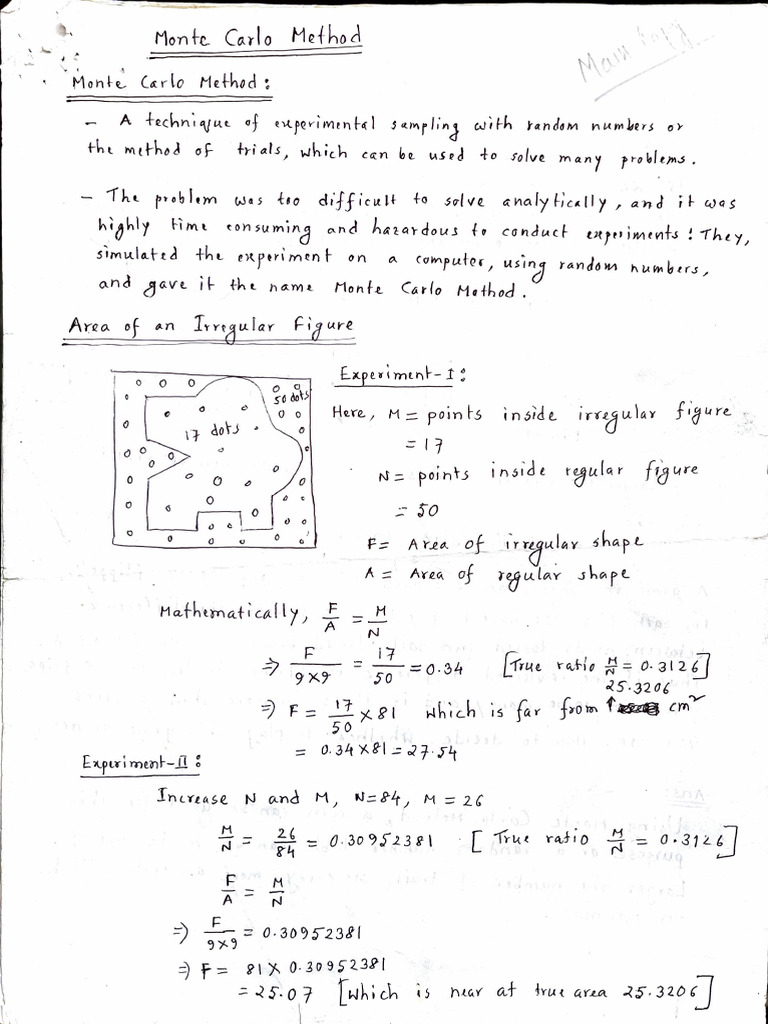 Monte Carlo Method
Monte Carlo Method:
- A technique of experimental sampling with random numbers or
the method of trials, which can be used to solve many problems.
- The problem was too difficult to solve analytically, and it was
highly time consuming and hazardous to conduct experiments! They,
simulated the experiment on a computer, using random numbers,
and gave it the name Monte Carlo Method.
Area of an Irregular Figure
50 dots
17 dots
Experiment-I:
Here, M = points inside irregular figure
= 17
N = points inside regular figure
= 50
F = Area of irregular shape
A = Area of regular shape
Mathematically, F/A = M/N
⇒ F/9×9 = 17/50 = 0.34 [True ratio M/N = 0.3126]
25.3206
⇒ F = 17/50 × 81 which is far from ↑ cm²
= 0.34 × 81 = 27.54
Experiment-II:
Increase N and M, N=84, M = 26
M/N = 26/84 = 0.30952381 [True ratio M/N = 0.3126]
F/A = M/N
⇒ F/9×9 = 0.30952381
⇒ F = 81 × 0.30952381
= 25.07 [which is near at true area 25.3206]